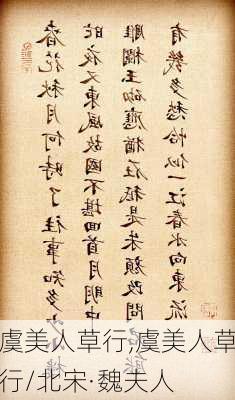 春花秋月何時了往事知多少小樓
昨夜又東風故國不堪回首月明中
雕欄玉砌應猶在祗是朱顏改問君能
有幾多愁恰似一江春水向東流
虞美人草行,虞美人草
行/北宋·魏夫人